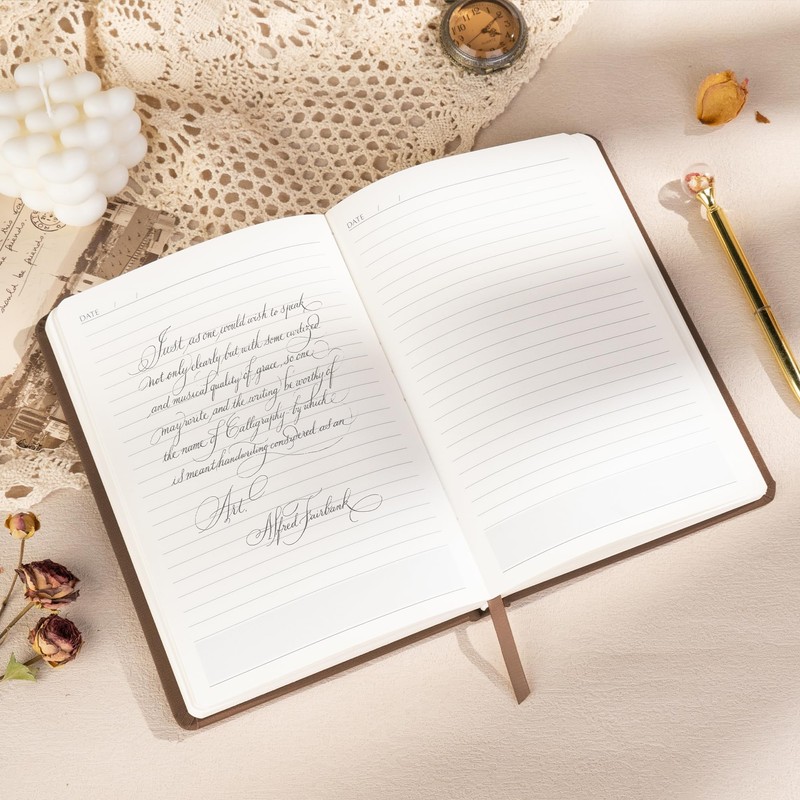 DATE / /
Just as one would wish to speak
not only clearly but with some cultured
and musical quality of grace, so one
may write and the writing be worthy of
the name of Calligraphy by which
is meant handwriting considered as an
Art.
Alfred Fairbank
DATE / /
be friends
should be friend